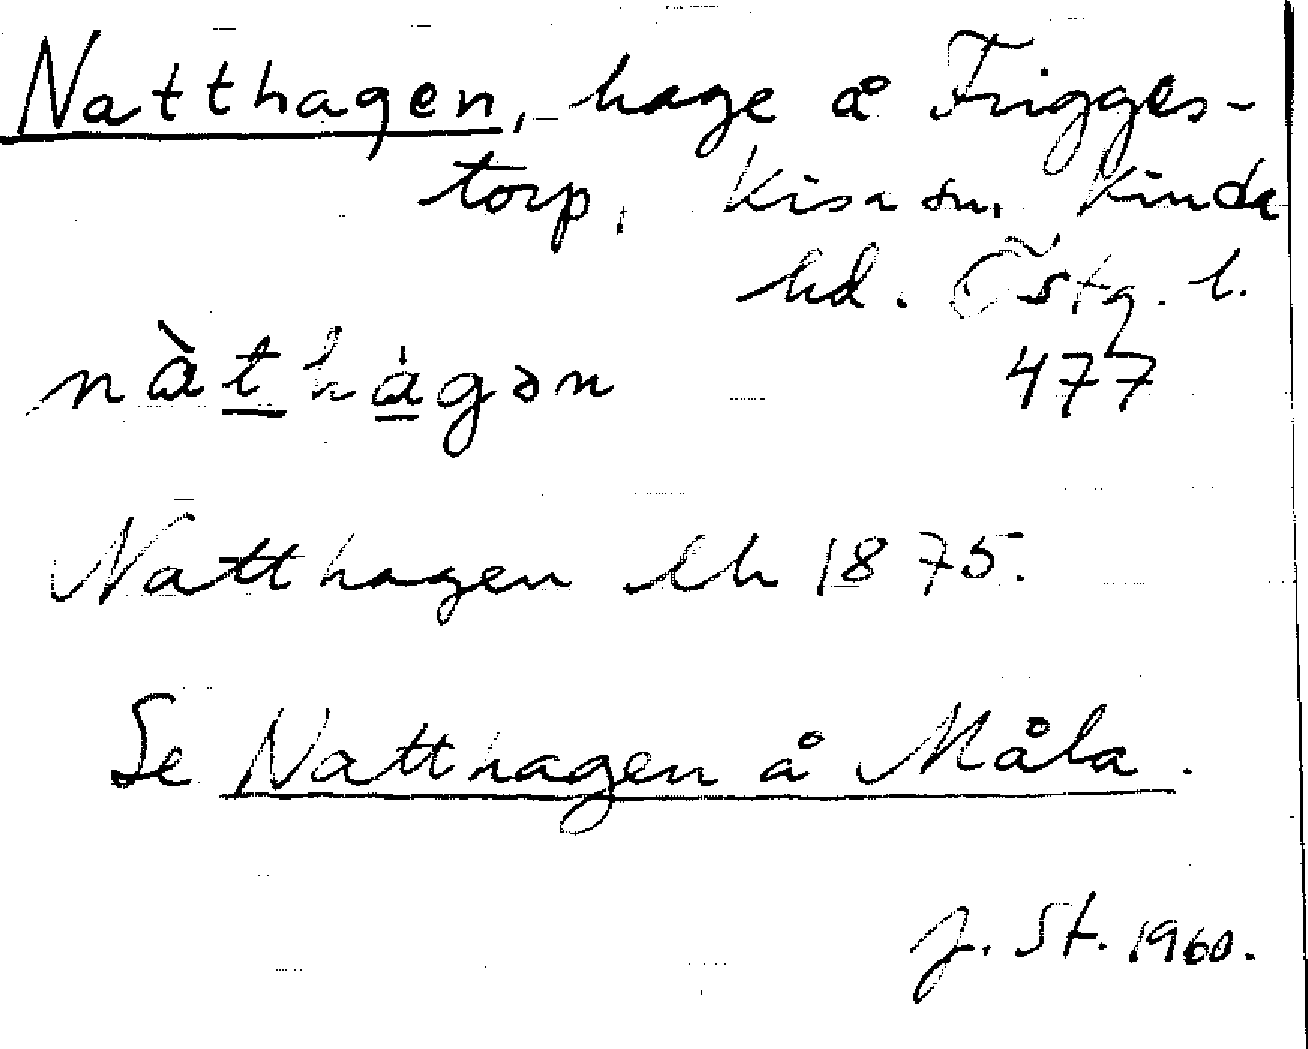 Natthagen, hage å Frigges-
torp, Kisa sn, Kinda
hd. Östg. l.
nàt hàgən 477
Natthagen Eh 1875.
Se Natthagen å Måla.
J. St. 1960.